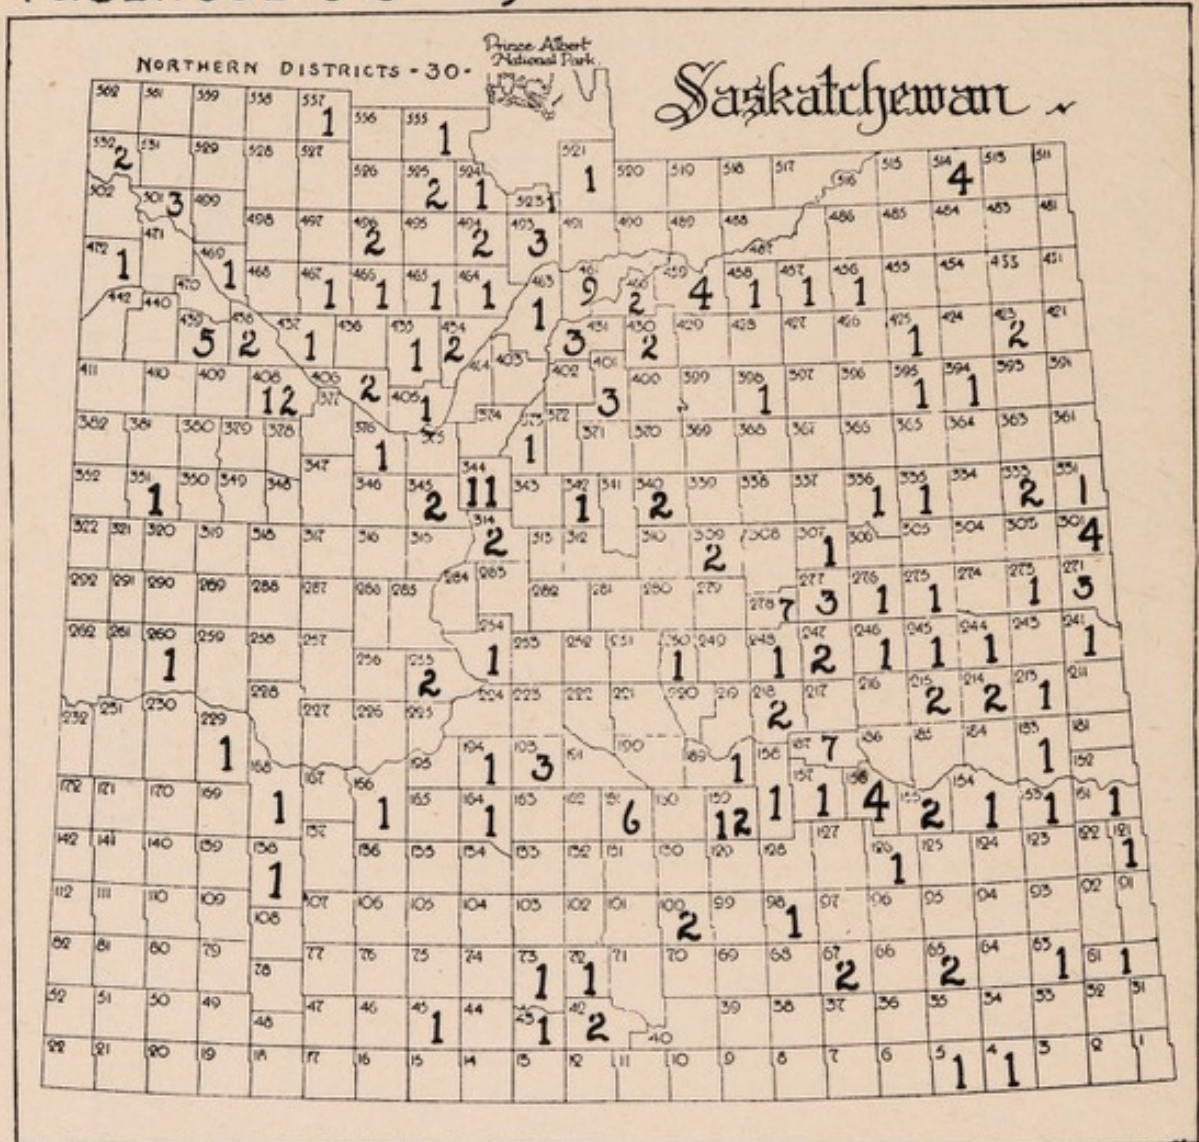 Prince Albert
National Park.
NORTHERN DISTRICTS - 30 -
Saskatchewan
562 561 559 558 557 1 556 555 1
532 2 531 529 528 527 526 525 2 524 1 523 1 521 1 520 519 518 517 516 515 514 4 513 511
502 501 3 499 498 497 496 2 495 494 2 493 3 491 490 489 488 487 486 485 484 483 481
472 1 471 470 469 1 468 467 1 466 1 465 1 464 1 463 1 461 9 460 2 459 4 458 1 457 1 456 1 455 454 453 451
442 440 439 5 438 2 437 1 436 435 1 434 2 3 431 430 2 429 428 427 426 425 1 424 423 2 421
411 410 409 408 12 406 2 405 1 404 403 402 401 3 400 399 398 1 397 396 395 1 394 1 393 391
382 381 380 379 378 377 376 1 375 374 373 1 372 371 370 369 368 367 366 365 364 363 361
352 351 1 350 349 348 347 346 345 2 344 11 343 342 1 341 340 2 339 338 337 336 1 335 1 334 333 2 331 1
322 321 320 319 318 317 316 315 314 2 313 312 310 309 2 308 307 1 306 305 304 303 301 4
292 291 290 289 288 287 286 285 284 283 282 281 280 279 278 7 277 3 276 1 275 1 274 273 1 271 3
262 261 260 1 259 258 257 256 255 2 254 1 253 252 251 250 1 249 248 1 247 2 246 1 245 1 244 1 243 241 1
232 231 230 229 1 228 227 226 225 224 223 222 221 220 219 218 2 217 216 215 2 214 2 213 1 211
195 194 1 193 3 191 190 189 1 187 7 186 185 184 183 1 181
172 171 170 169 168 1 167 166 1 165 164 1 163 162 161 6 160 159 12 158 1 157 1 156 4 155 2 154 1 153 1 152 151 1
142 141 140 139 138 1 137 136 135 134 133 132 131 130 129 128 127 126 1 125 124 123 122 121 1
112 111 110 109 108 107 106 105 104 103 102 101 100 2 99 98 1 97 96 95 94 93 92 91
82 81 80 79 78 77 76 75 74 73 1 72 1 71 70 69 68 67 2 66 65 2 64 63 1 61 1
52 51 50 49 48 47 46 45 1 44 43 1 42 2 40 39 38 37 36 35 34 33 32 31
22 21 20 19 18 17 16 15 14 13 12 11 10 9 8 7 6 5 1 4 1 3 2 1